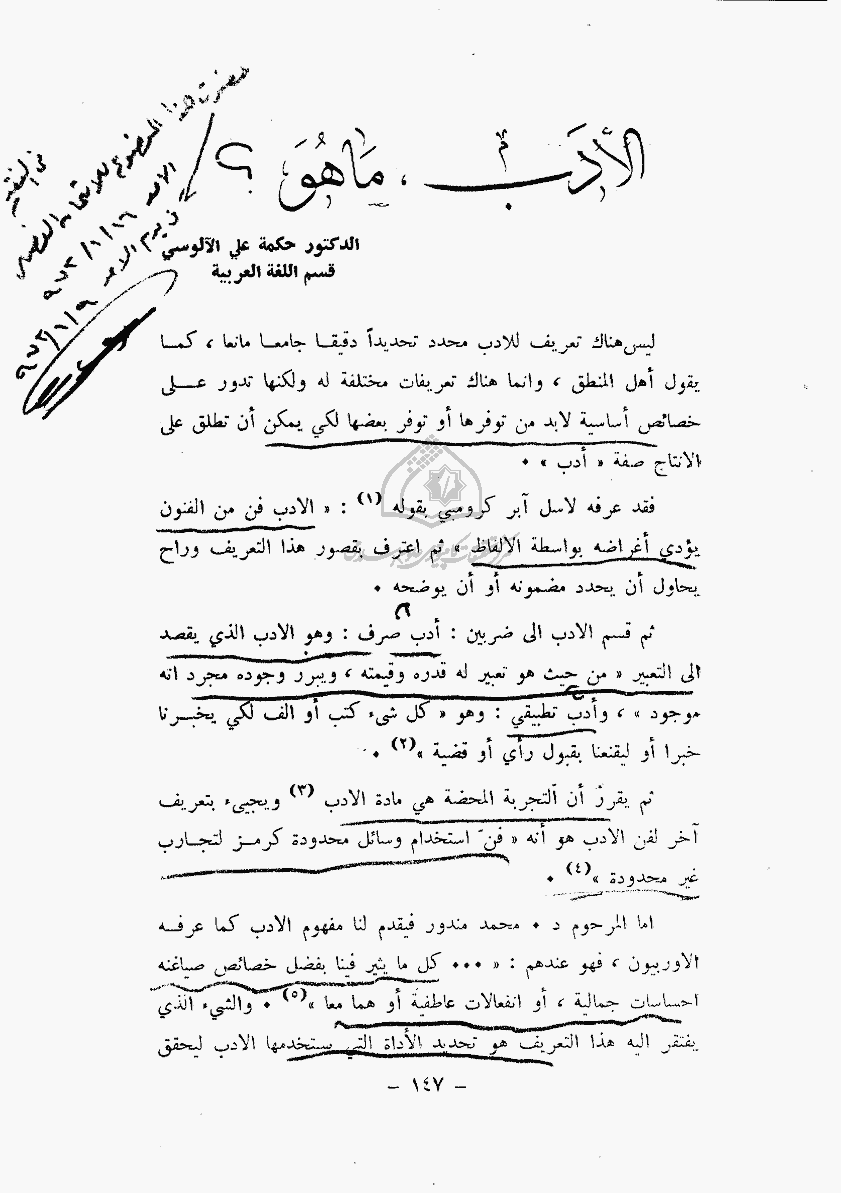 الأدَب ، مَاهُوَ ؟
الدكتور حكمة علي الآلوسي
قسم اللغة العربية
ليس هناك تعريف للادب محدد تحديداً دقيقـا جامعـا مانعا ، كمـا
يقول أهل المنطق ، وانما هناك تعريفات مختلفة له ولكنها تدور عـــلى
خصائص أساسية لابد من توفرها أو توفر بعضها لكي يمكن أن تطلق على
الانتاج صفة « أدب » ٠
فقد عرفه لاسل آبر كرومبي بقوله (١) : « الادب فن من الفنون
يؤدي أغراضه بواسطة الالفاظ » ثم اعترف بقصور هذا التعريف وراح
يحاول أن يحدد مضمونه أو أن يوضحه ٠
ثم قسم الادب الى ضربين : أدب صرف : وهو الادب الذي يقصد
الى التعبير « من حيث هو تعبير له قدره وقيمته ، ويبرر وجوده مجرد انه
موجود » ، وأدب تطبيقي : وهو « كل شىء كتب أو الف لكي يخبـرنا
خبرا أو ليقنعنا بقبول رأي أو قضية »(٢) ٠
ثم يقرر أن التجربة المحضة هي مادة الادب (٣) ويجيىء بتعريف
آخر لفن الادب هو أنه « فنّ استخدام وسائل محدودة كرمـز لتجـارب
غير محدودة »(٤) ٠
اما المرحوم د ٠ محمد مندور فيقدم لنا مفهوم الادب كما عرفـه
الاوربيون ، فهو عندهم : « ٠٠٠ كل ما يثير فينا بفضل خصائص صياغته
احساسات جمالية ، أو انفعالات عاطفية أو هما معا »(٥) ٠ والشيء الذي
يفتقر اليه هذا التعريف هو تحديد الأداة التي يستخدمها الادب ليحقق
– ١٤٧ –